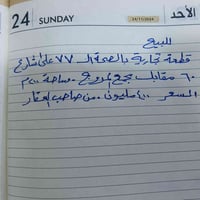 24 SUNDAY 24/11/2024 الأحد
للبيع
قطعة تجارية بالصحة الـ ٧٧ على شارع
٦٠ مقابل مجمع المروج . مساحة ٢٠٠ م
السعر ٤٠٠ مليون . من صاحب العقار